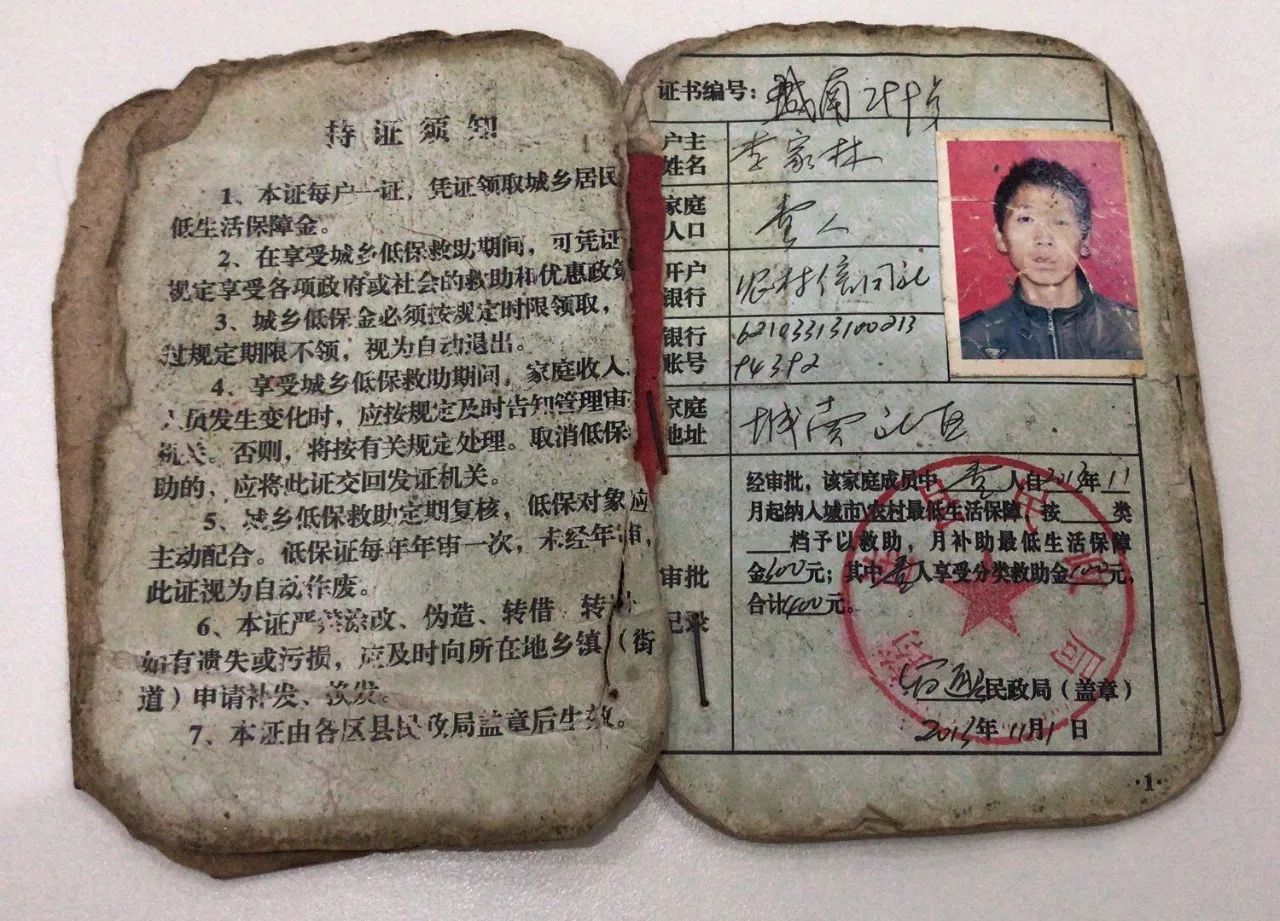 持证须知
1、本证每户一证，凭证领取城乡居民
低生活保障金。
2、在享受城乡低保救助期间，可凭证
规定享受各项政府或社会的救助和优惠政策
3、城乡低保金必须按规定时限领取，
过规定期限不领，视为自动退出。
4、享受城乡低保救助期间，家庭收入、
人员发生变化时，应按规定及时告知管理审
机关。否则，将按有关规定处理。取消低保
助的，应将此证交回发证机关。
5、城乡低保救助定期复核，低保对象应
主动配合。低保证每年年审一次，未经年审，
此证视为自动作废。
6、本证严禁涂改、伪造、转借、转
如有遗失或污损，应及时向所在地乡镇（街
道）申请补发、换发。
7、本证由各区县民政局盖章后生效。
证书编号：城南299号
户主姓名 李家林
家庭人口 壹人
开户银行 农村信用社
银行账号 62103313100213
94392
家庭地址 城南社区
审批记录
经审批，该家庭成员中 壹 人自2013年11
月起纳入城市\农村最低生活保障，按 类
档予以救助，月补助最低生活保障
金300元；其中壹人享受分类救助金100元，
合计400元。
民政局（盖章）
2013年11月1日
·1·